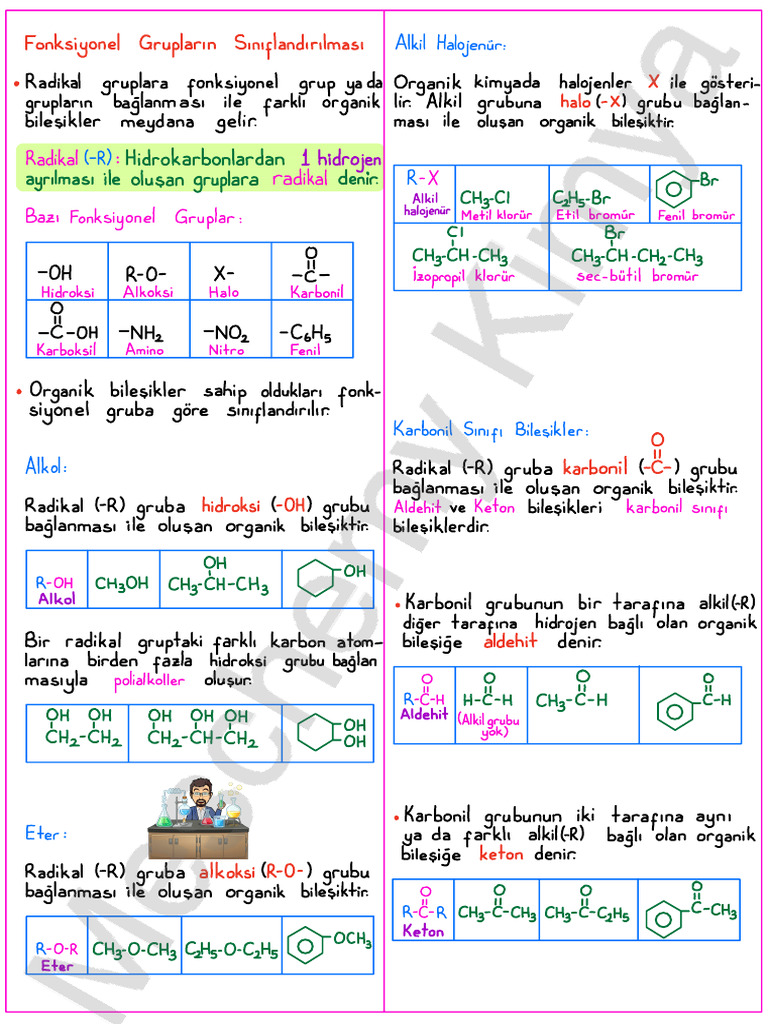 Fonksiyonel Grupların Sınıflandırılması
• Radikal gruplara fonksiyonel grup ya da
grupların bağlanması ile farklı organik
bileşikler meydana gelir.
Radikal (-R): Hidrokarbonlardan 1 hidrojen
ayrılması ile oluşan gruplara radikal denir.
Bazı Fonksiyonel Gruplar:
-OH R-O- X- O
-C-
Hidroksi Alkoksi Halo Karbonil
O
-C-OH -NH2 -NO2 -C6H5
Karboksil Amino Nitro Fenil
• Organik bileşikler sahip oldukları fonk-
siyonel gruba göre sınıflandırılır.
Alkol:
Radikal (-R) gruba hidroksi (-OH) grubu
bağlanması ile oluşan organik bileşiktir.
R-OH CH3OH OH
CH3-CH-CH3 OH
Alkol
Bir radikal gruptaki farklı karbon atom-
larına birden fazla hidroksi grubu bağlan
masıyla polialkoller oluşur.
OH OH OH OH OH OH
CH2-CH2 CH2-CH-CH2 OH
Eter:
Radikal (-R) gruba alkoksi (R-O-) grubu
bağlanması ile oluşan organik bileşiktir.
R-O-R CH3-O-CH3 C2H5-O-C2H5 OCH3
Eter
Alkil Halojenür:
Organik kimyada halojenler X ile gösteri-
lir. Alkil grubuna halo (-X) grubu bağlan-
ması ile oluşan organik bileşiktir.
R-X CH3-Cl C2H5-Br Br
Alkil
halojenür Metil klorür Etil bromür Fenil bromür
Cl Br
CH3-CH-CH3 CH3-CH-CH2-CH3
İzopropil klorür sec-bütil bromür
Karbonil Sınıfı Bileşikler:
O
Radikal (-R) gruba karbonil (-C-) grubu
bağlanması ile oluşan organik bileşiktir.
Aldehit ve Keton bileşikleri karbonil sınıfı
bileşiklerdir.
• Karbonil grubunun bir tarafına alkil(-R)
diğer tarafına hidrojen bağlı olan organik
bileşiğe aldehit denir.
O O O O
R-C-H H-C-H CH3-C-H C-H
Aldehit (Alkil grubu
yok)
• Karbonil grubunun iki tarafına aynı
ya da farklı alkil(-R) bağlı olan organik
bileşiğe keton denir.
O O O O
R-C-R CH3-C-CH3 CH3-C-C2H5 C-CH3
Keton
Mechemy Kimya